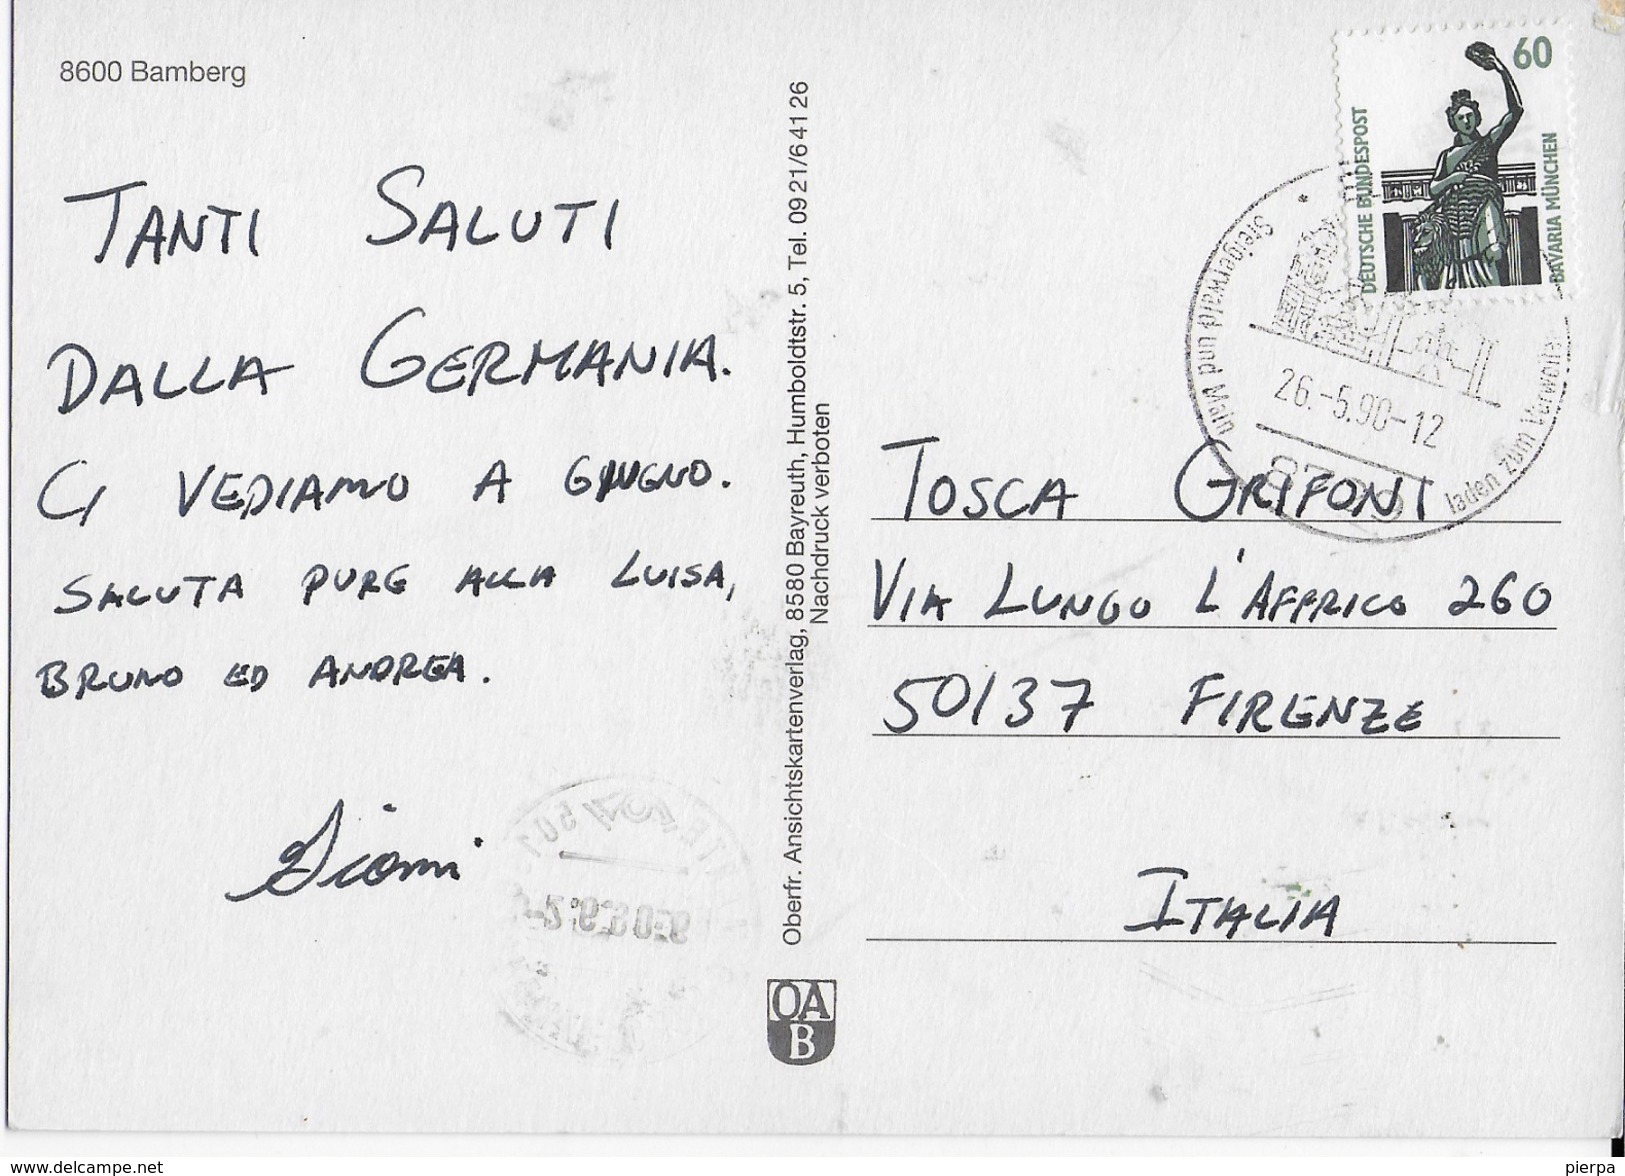 8600 Bamberg
TANTI SALUTI
DALLA GERMANIA.
CI VEDIAMO A GIUGNO.
SALUTA PURE ALLA LUISA,
BRUNO ED ANDREA.
Oberfr. Ansichtskartenverlag, 8580 Bayreuth, Humboldtstr. 5, Tel. 0921/64126
Nachdruck verboten
OAB
60
DEUTSCHE BUNDESPOST
BAVARIA MÜNCHEN
Steigerwald und Main
laden zum Verweilen
26.-5.90-12
TOSCA GRIFONI
VIA LUNGO L'AFFRICO 260
50137 FIRENZE
ITALIA
www.delcampe.net
pierpa